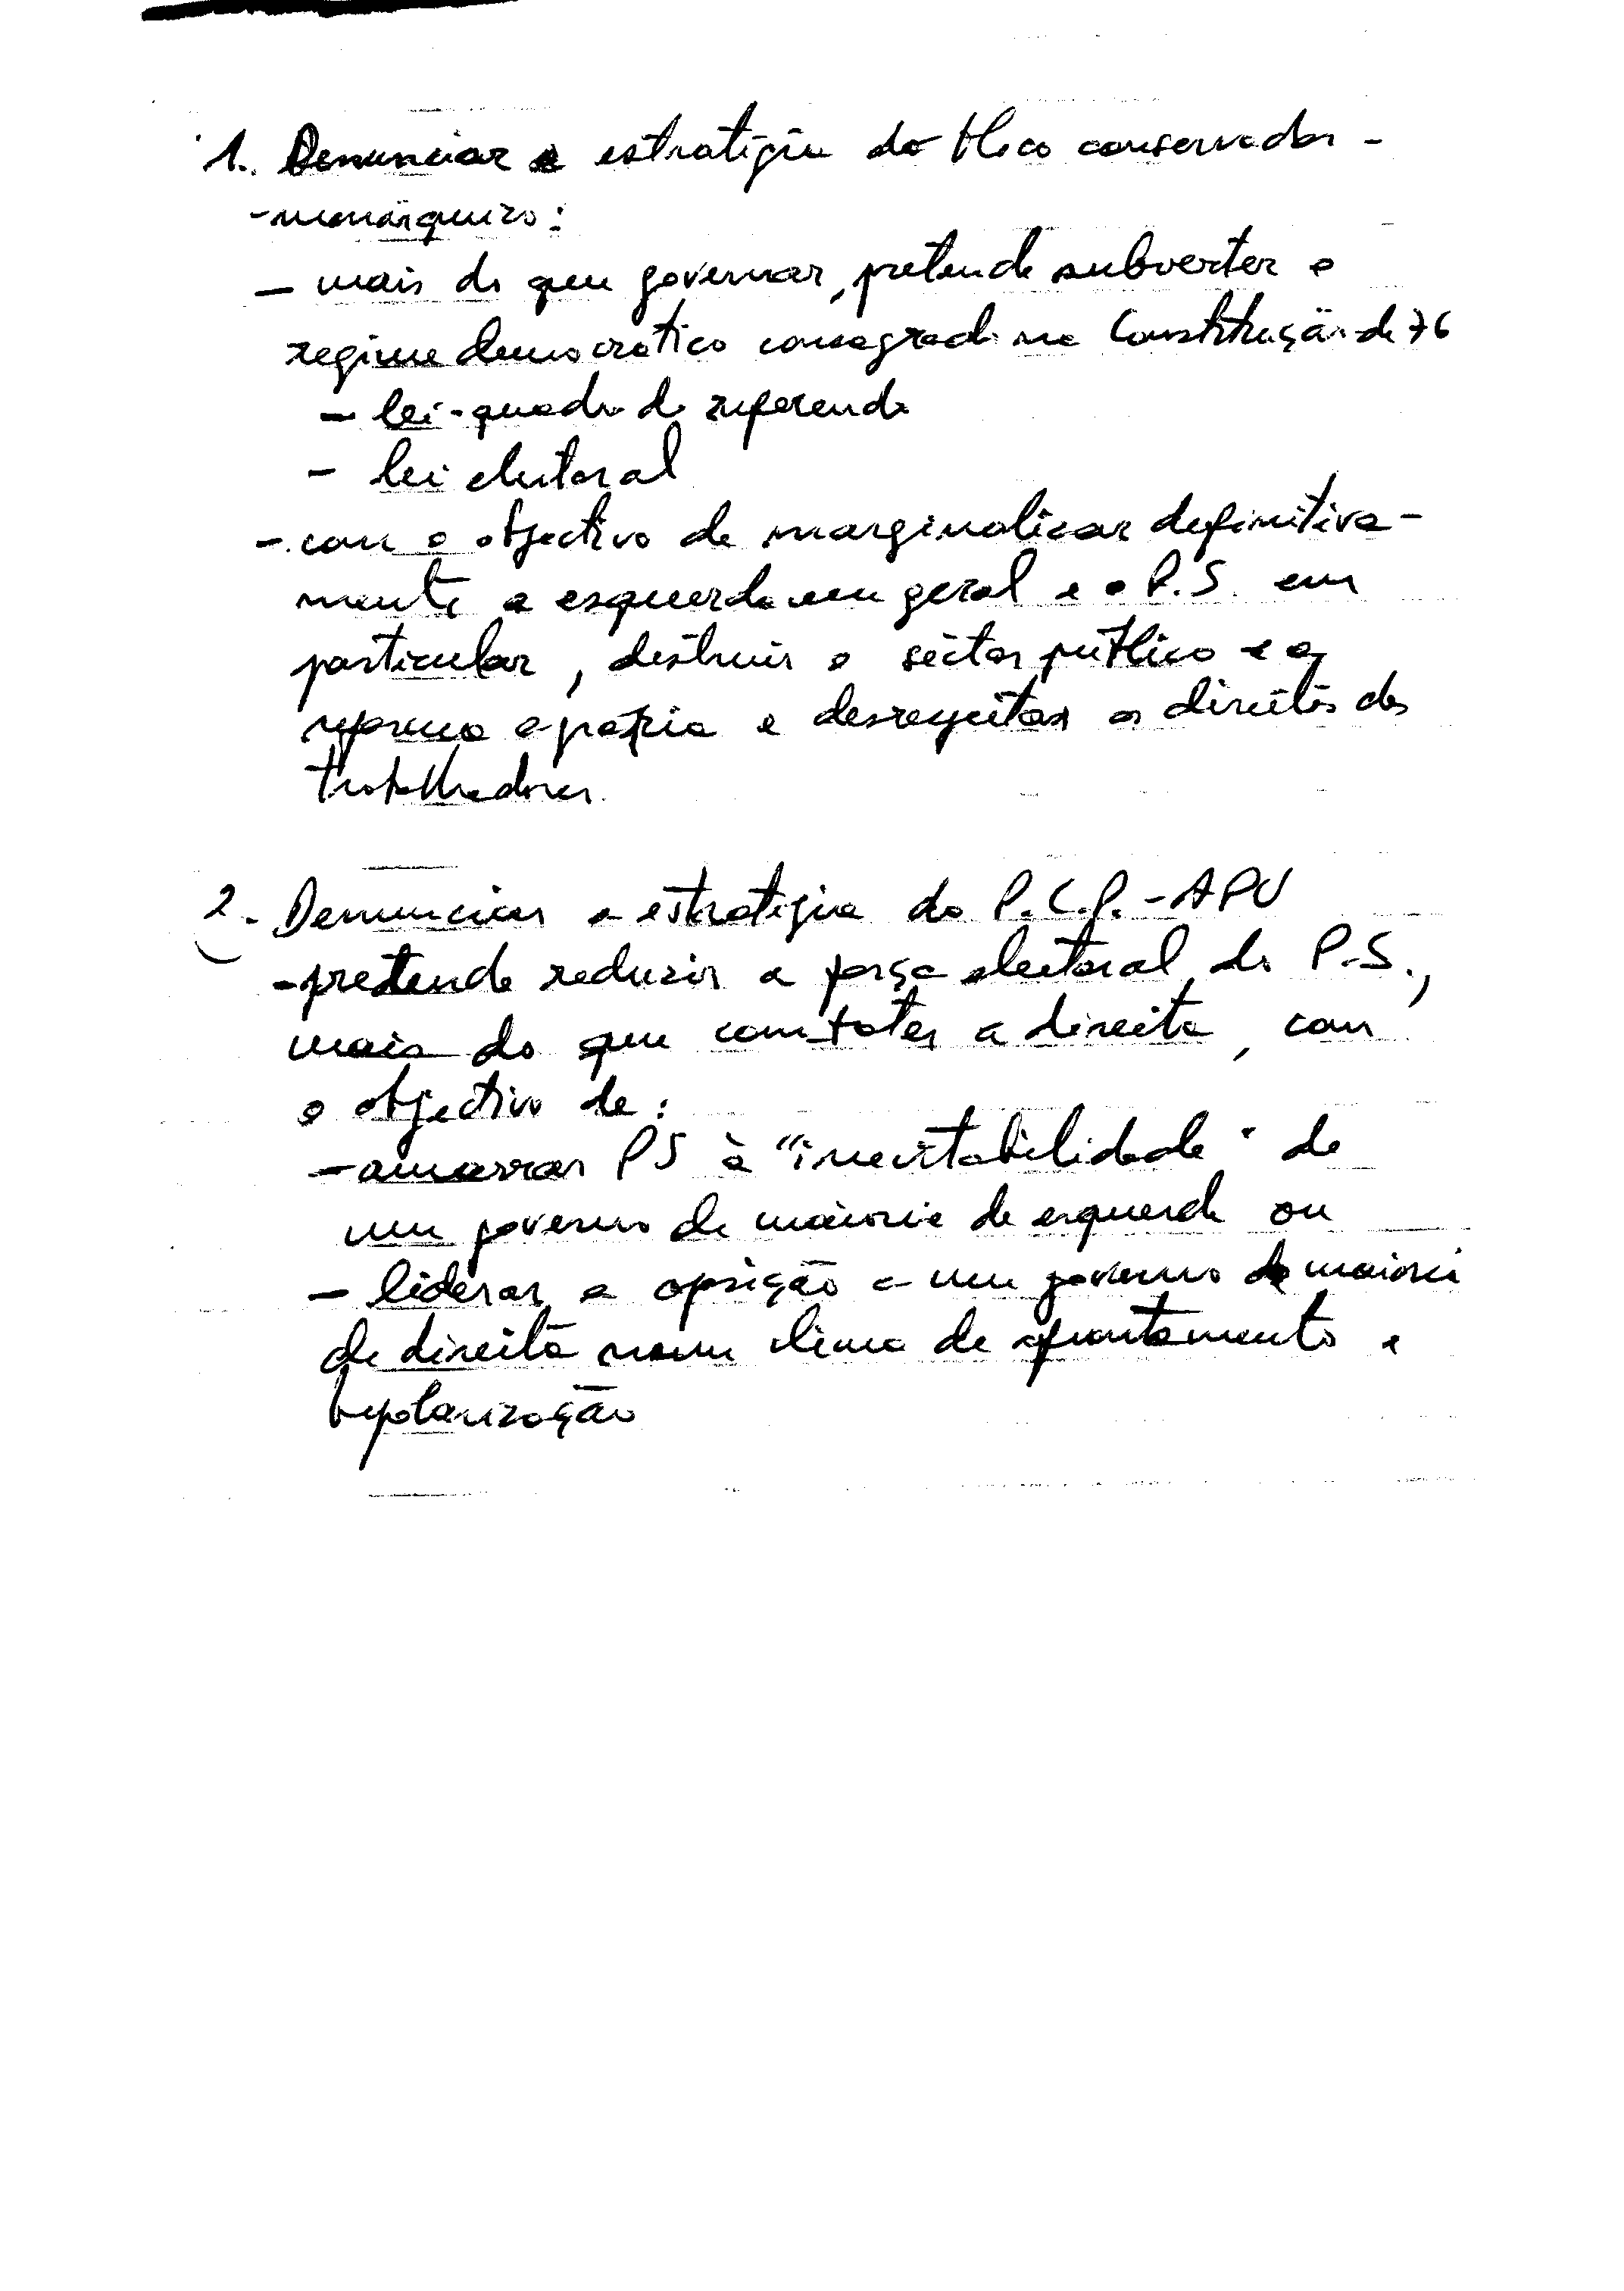 1. Denunciar a estratégia do bloco conservador -
- monárquico:
- mais do que governar, pretende subverter o
regime democrático consagrado na Constituição de 76
- lei-quadro do referendo
- lei eleitoral
- com o objectivo de marginalizar definitiva-
mente a esquerda em geral e o P.S. em
particular, destruir o sector público e a
reforma agrária e desrespeitar os direitos dos
trabalhadores.
2. Denunciar a estratégia do P.C.P. - APU
- pretende reduzir a força eleitoral do P.S.,
mais do que combater a direita, com
o objectivo de:
- amarrar PS à "inevitabilidade" de
um governo de maioria de esquerda ou
- liderar a oposição a um governo de maioria
de direita num clima de afrontamento e
bipolarização